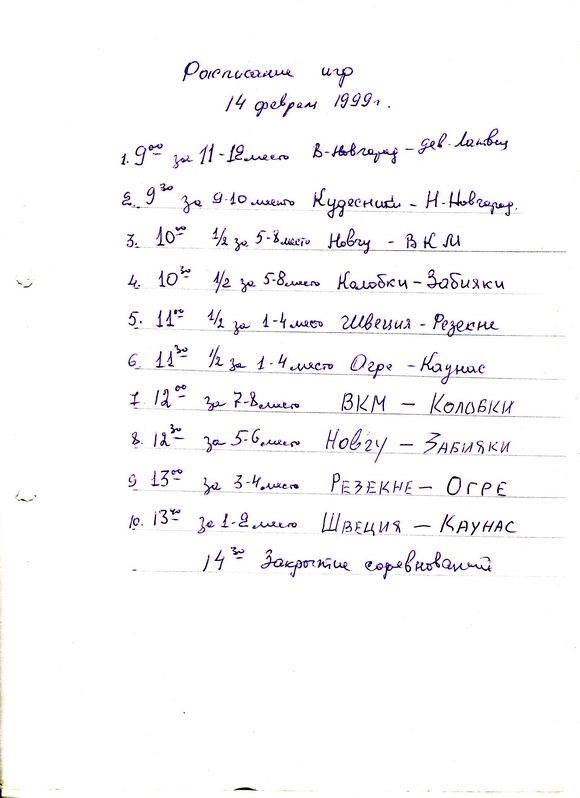 Расписание игр
14 февраля 1999г.
1. 9⁰⁰ за 11-12 место В-Новгород - дев. Латвии
2. 9³⁰ за 9-10 место Кудесники - Н-Новгород.
3. 10⁰⁰ 1/2 за 5-8 место Новгу - ВКМ
4. 10³⁰ 1/2 за 5-8 место Колобки - Забияки
5. 11⁰⁰ 1/2 за 1-4 место Швеция - Резекне
6. 11³⁰ 1/2 за 1-4 место Огре - Каунас
7. 12⁰⁰ за 7-8 место ВКМ - КОЛОБКИ
8. 12³⁰ за 5-6 место НОВГУ - ЗАБИЯКИ
9. 13⁰⁰ за 3-4 место РЕЗЕКНЕ - ОГРЕ
10. 13⁴⁰ за 1-2 место ШВЕЦИЯ - КАУНАС
14³⁰ Закрытие соревнований